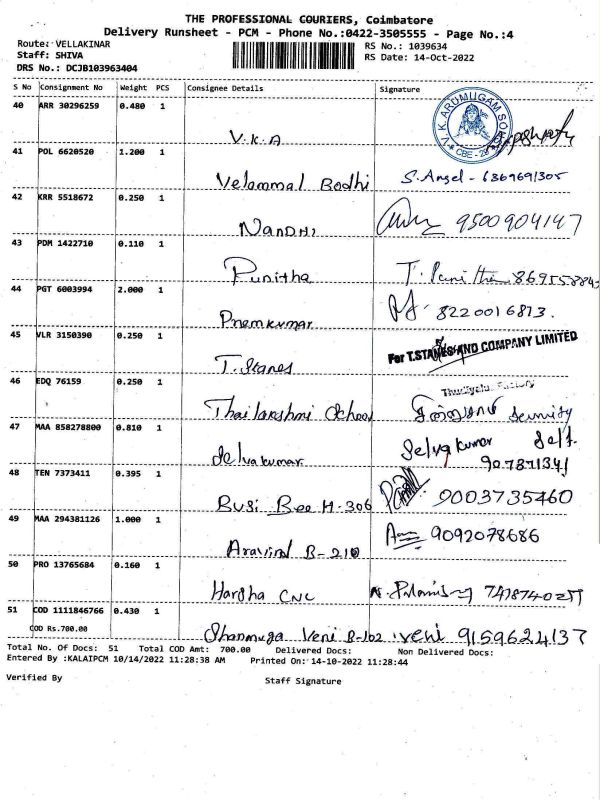 THE PROFESSIONAL COURIERS, Coimbatore
Delivery Runsheet - PCM - Phone No.:0422-3505555 - Page No.:4
Route: VELLAKINAR
RS No.: 1039634
Staff: SHIVA
RS Date: 14-Oct-2022
DRS No.: DCJB103963404
S No Consignment No Weight PCS Consignee Details Signature
40 ARR 30296259 0.480 1
V.K.A
V.K. ARUMUGAM
41 POL 6620520 1.200 1
Velammal Bodhi S. Angel - 6369691305
42 KRR 5518672 0.250 1
Nandhi 9500904147
43 PDM 1422710 0.110 1
Punitha
44 PGT 6003994 2.000 1
Premkumar 8220016813.
45 VLR 3150390 0.250 1
T. Stanes For T.STANES AND COMPANY LIMITED
46 EDQ 76159 0.250 1
Factory
Thailakshmi School Security
47 MAA 858278800 0.810 1
Selvakumar Selvakumar Self.
48 TEN 7373411 0.395 1
Busi Bee H-306 9003735460
49 MAA 294381126 1.000 1
Aravind B-210 9092078686
50 PRO 13765684 0.160 1
Harsha CNC
51 COD 1111846766 0.430 1
COD Rs.700.00
Shanmuga Veni B-102 Veni 9159624137
Total No. Of Docs: 51 Total COD Amt: 700.00 Delivered Docs: Non Delivered Docs:
Entered By :KALAIPCM 10/14/2022 11:28:38 AM Printed On: 14-10-2022 11:28:44
Verified By Staff Signature